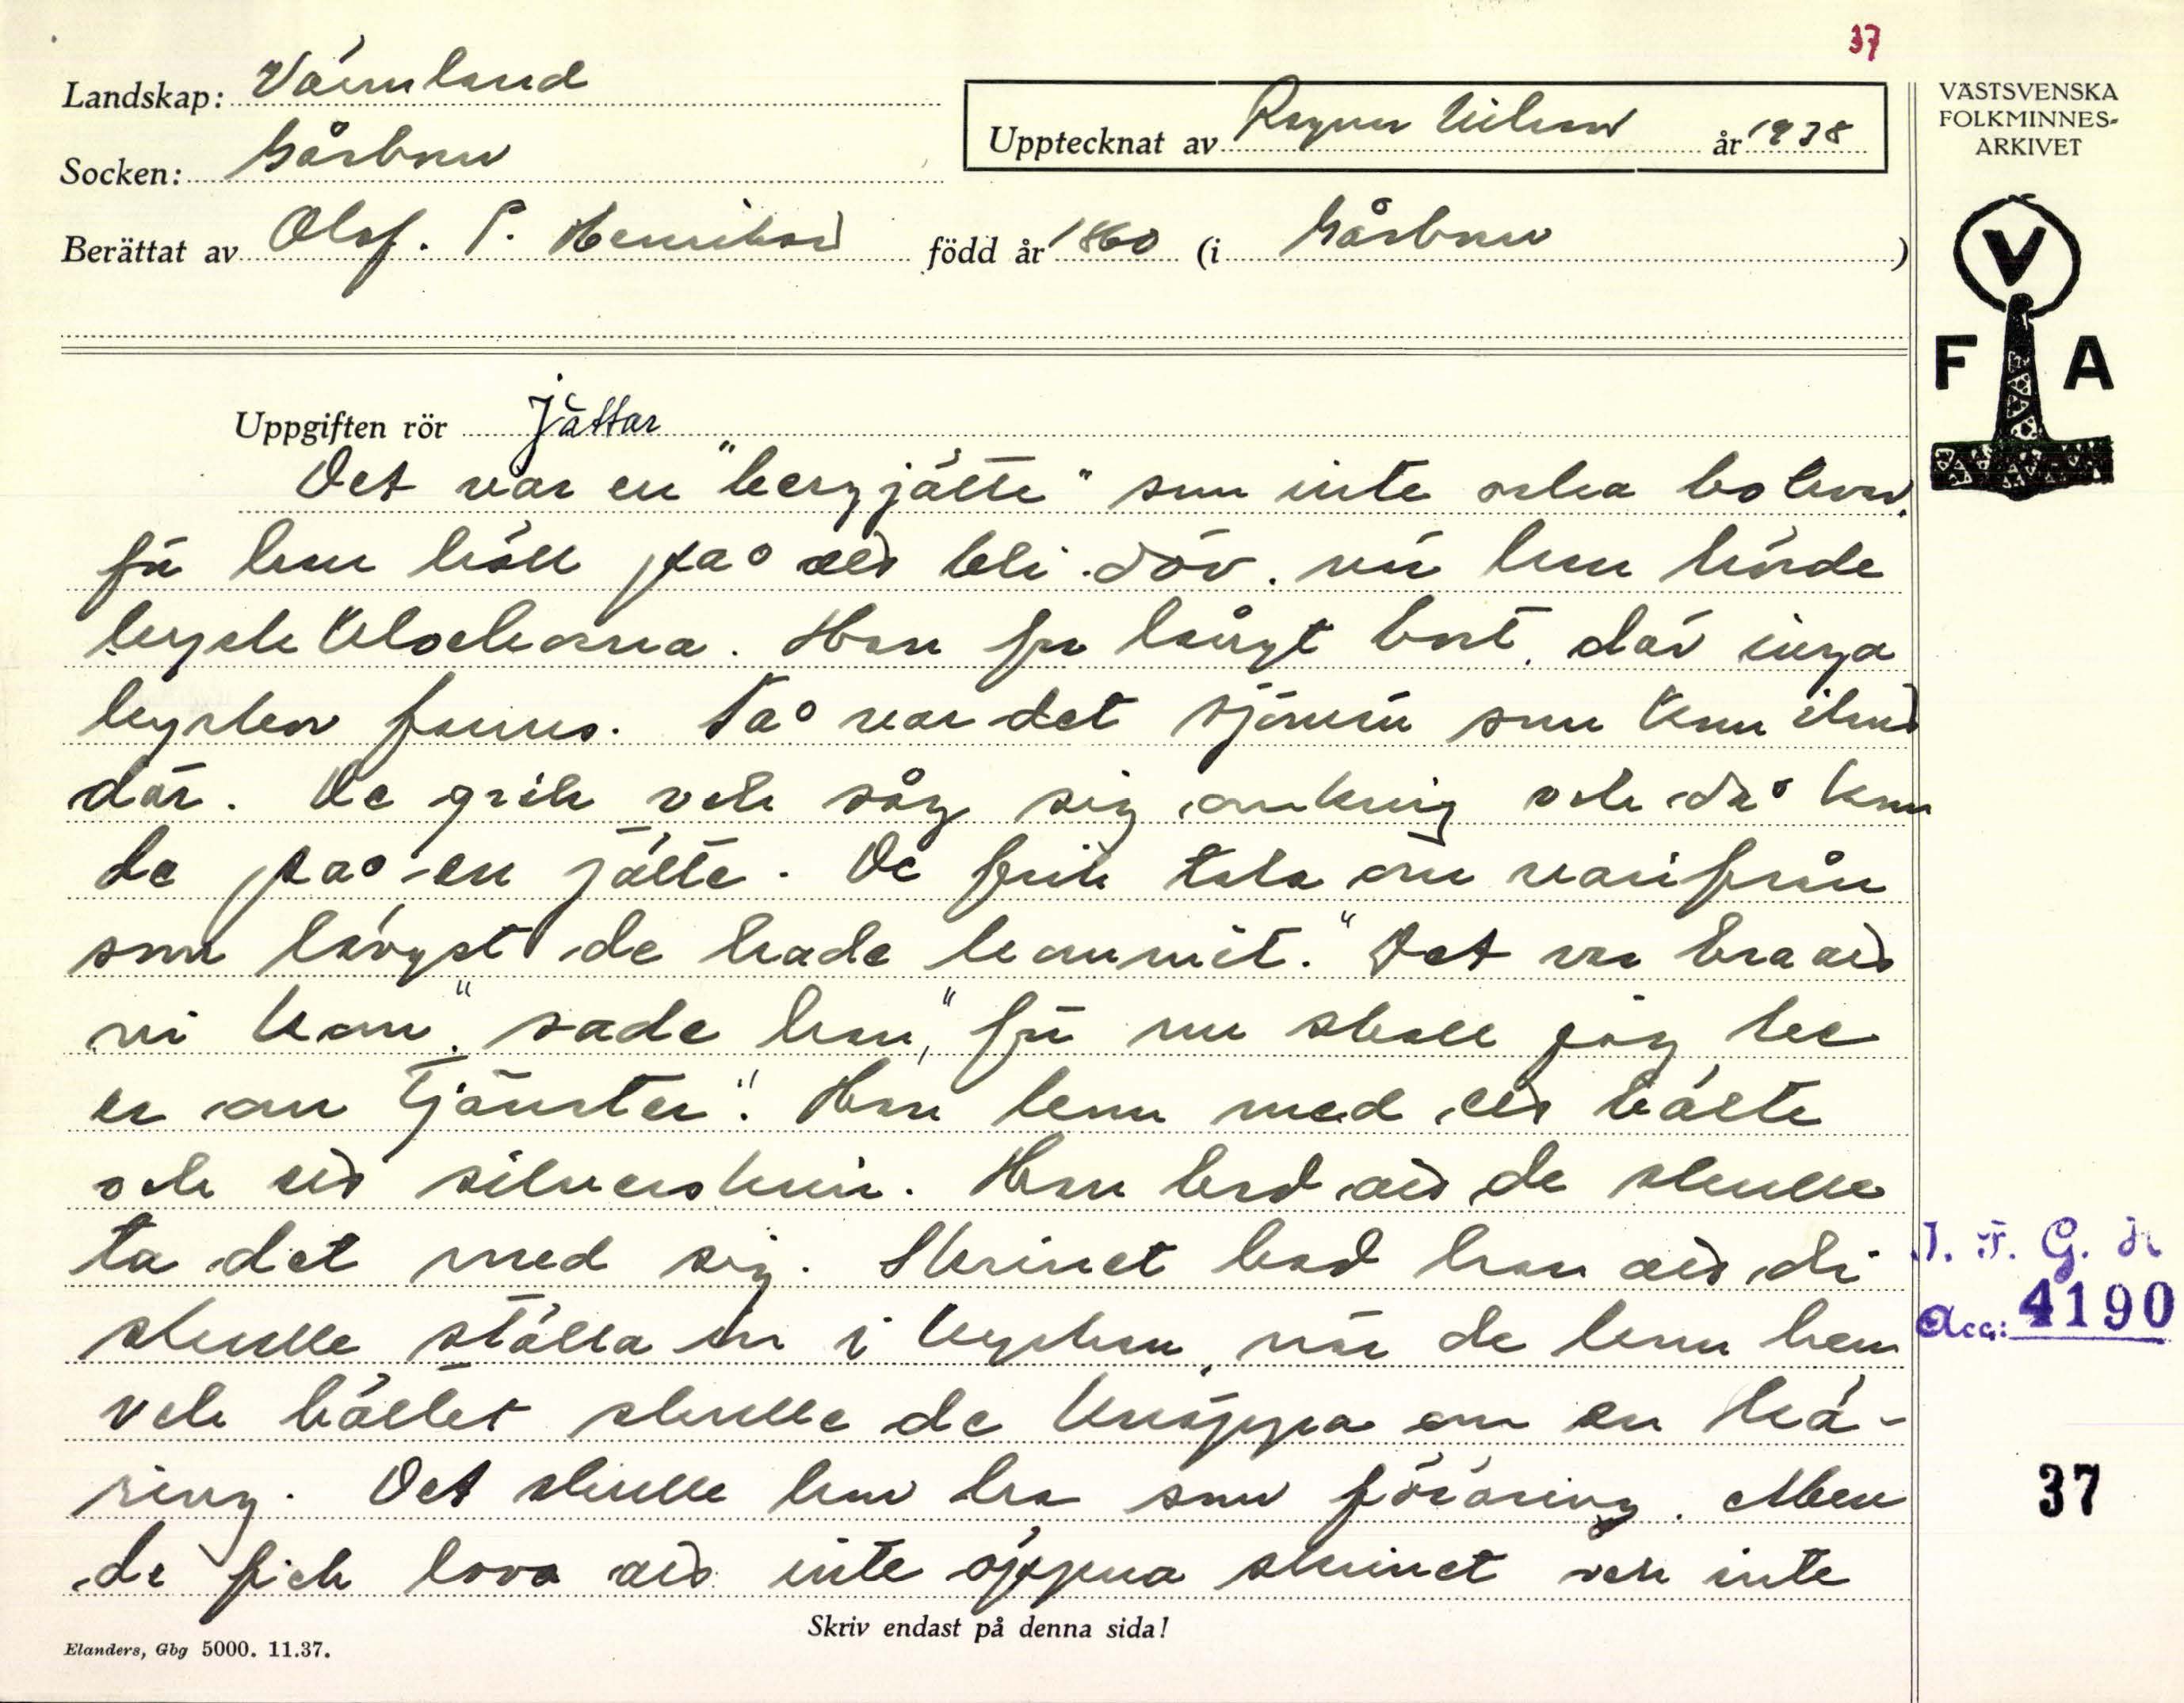 37
Landskap: Värmland
Upptecknat av Ragnar Nilsson år 1938
Socken: Gåsborn
Berättat av Olof. P. Henrikson född år 1860 (i Gåsborn )
VÄSTSVENSKA
FOLKMINNES-
ARKIVET
V
F A
Uppgiften rör Jättar
Det var en "bergjätte" som inte orka bo kvar,
för han höll på att bli döv, när han hörde
kyrkklockorna. Han for långt bort, där inga
kyrkor fanns. Så var det sjömän som kom iland
där. De gick och såg sig omkring och då kom
de på en jätte. De fick tala om varifrån
som långst de hade kommit. "Det var bra att
ni kom", sade han, "för nu skall jag be
er om tjänster". Han kom med ett bälte
och ett silverskrin. Han bad att de skulle
ta det med sig. Skrinet bad han att de
skulle ställa in i kyrkan, när de kom hem
och bältet skulle de knäppa om en kä-
ring. Det skulle hon ha som föräring. Men
de fick lova att inte öppna skrinet och inte
I. F. G. H
Acc: 4190
37
Skriv endast på denna sida!
Elanders, Gbg 5000. 11.37.